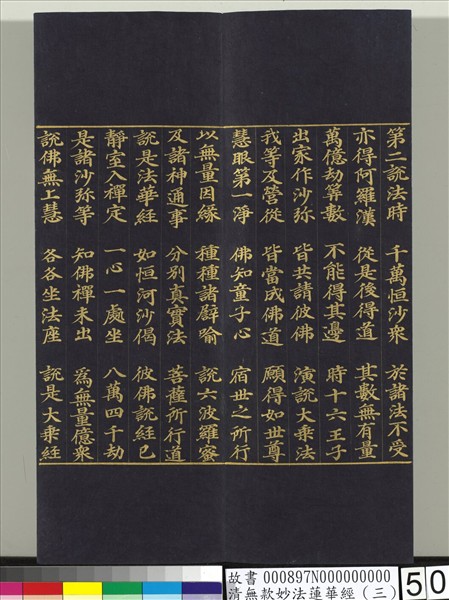 第二說法時 千萬恒沙衆 於諸法不受
亦得阿羅漢 從是後得道 其數無有量
萬億劫算數 不能得其邊 時十六王子
出家作沙弥 皆共請彼佛 演說大乗法
我等及營從 皆當成佛道 願得如世尊
慧眼第一淨 佛知童子心 宿世之所行
以無量因緣 種種諸譬喻 說六波羅蜜
及諸神通事 分別真實法 菩薩所行道
說是法華經 如恒河沙偈 彼佛說經已
靜室入禪定 一心一處坐 八萬四千劫
是諸沙弥等 知佛禪未出 為無量億衆
說佛無上慧 各各坐法座 說是大乗經
故書 000897N000000000
清無款妙法蓮華經（三）
50